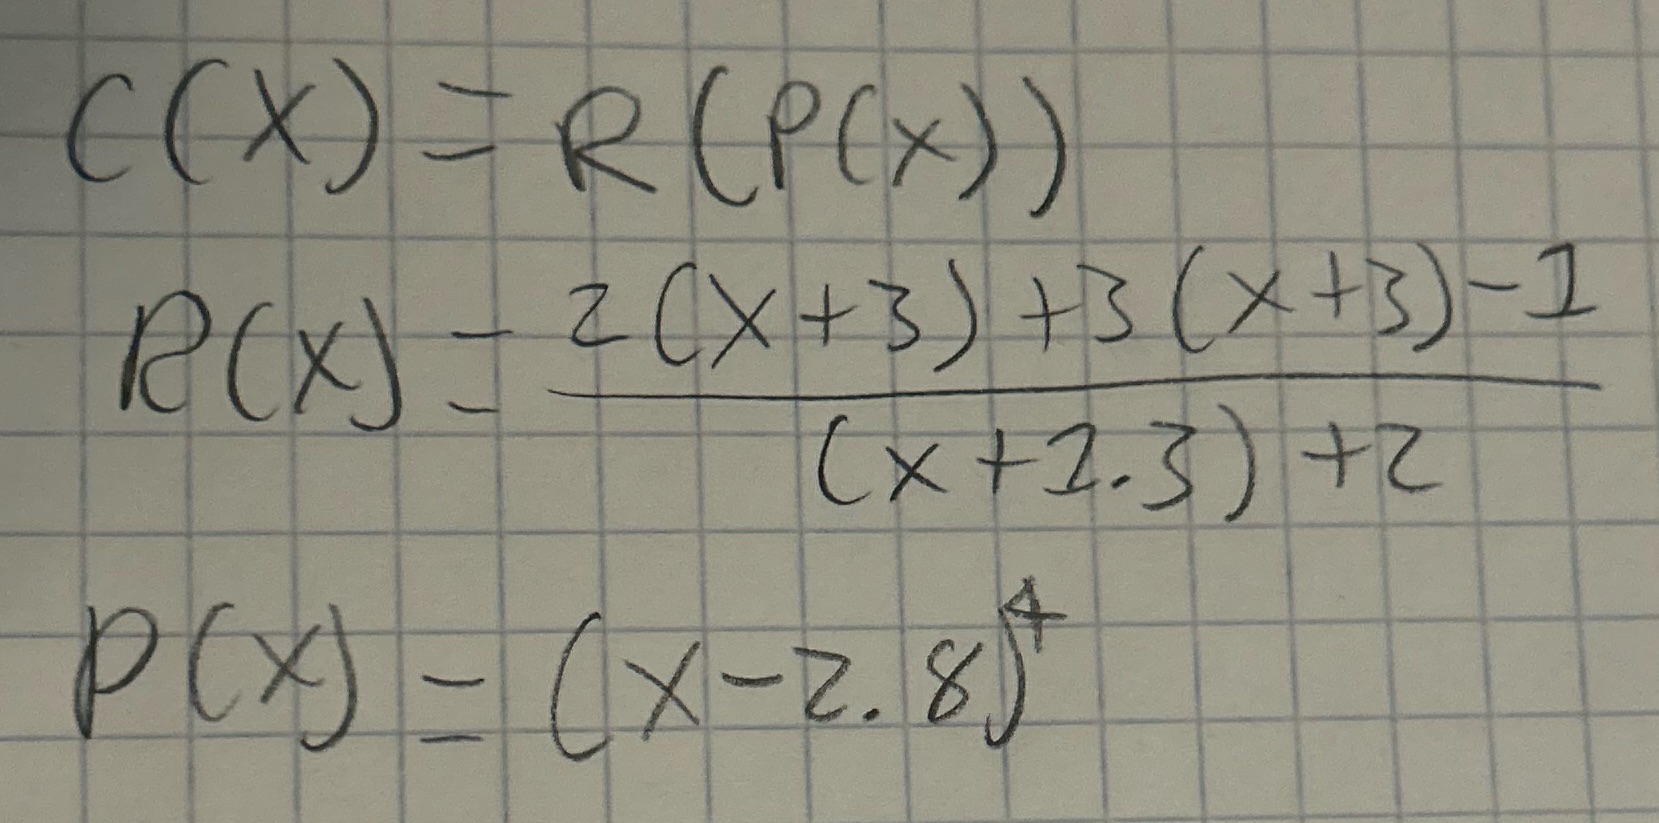 C(X) = R(P(X))
R(X) = \frac{2(X+3)+3(X+3)-1}{(X+1.3)+2}
P(X) = (X-2.8)^4